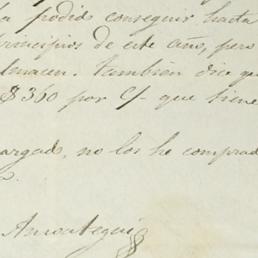 ha podido conseguir hasta
principios de este año, pero
almacen. Tambien dice que
$360 por C/- que tiene
argado, no los he comprad
a.
Amostegui